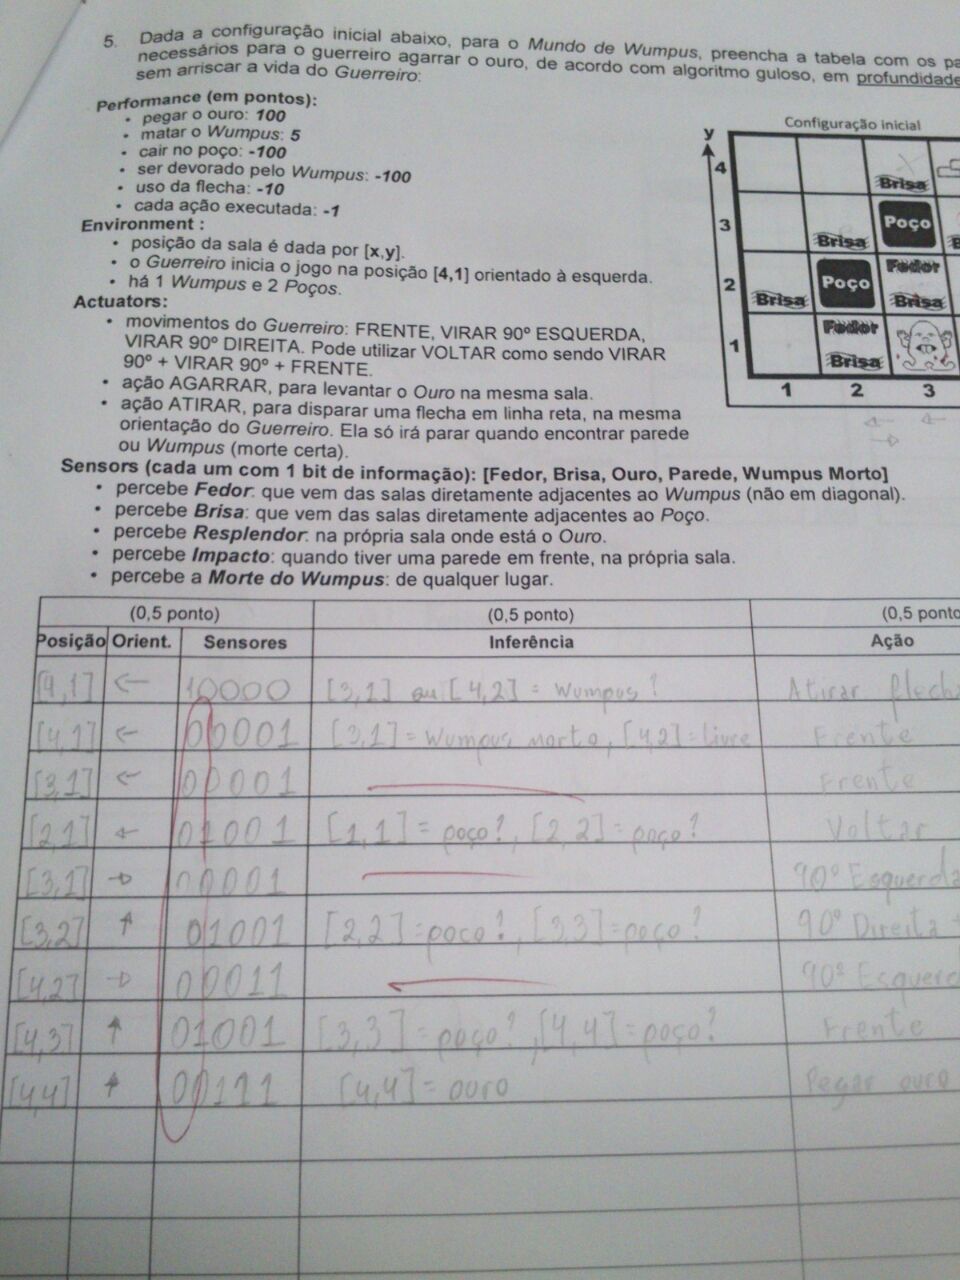 5. Dada a configuração inicial abaixo, para o Mundo de Wumpus, preencha a tabela com os
necessários para o guerreiro agarrar o ouro, de acordo com algoritmo guloso, em profundidade
sem arriscar a vida do Guerreiro:
Performance (em pontos):
• pegar o ouro: 100
• matar o Wumpus: 5
• cair no poço: -100
• ser devorado pelo Wumpus: -100
• uso da flecha: -10
• cada ação executada: -1
Environment :
• posição da sala é dada por [x,y].
• o Guerreiro inicia o jogo na posição [4,1] orientado à esquerda.
• há 1 Wumpus e 2 Poços.
Actuators:
• movimentos do Guerreiro: FRENTE, VIRAR 90º ESQUERDA,
VIRAR 90º DIREITA. Pode utilizar VOLTAR como sendo VIRAR
90º + VIRAR 90º + FRENTE.
• ação AGARRAR, para levantar o Ouro na mesma sala.
• ação ATIRAR, para disparar uma flecha em linha reta, na mesma
orientação do Guerreiro. Ela só irá parar quando encontrar parede
ou Wumpus (morte certa).
Configuração inicial
y
4
Brisa
3
Brisa
Poço
2
Brisa
Poço
Fedor
Brisa
1
Fedor
Brisa
1 2 3
Sensors (cada um com 1 bit de informação): [Fedor, Brisa, Ouro, Parede, Wumpus Morto]
• percebe Fedor: que vem das salas diretamente adjacentes ao Wumpus (não em diagonal).
• percebe Brisa: que vem das salas diretamente adjacentes ao Poço.
• percebe Resplendor: na própria sala onde está o Ouro.
• percebe Impacto: quando tiver uma parede em frente, na própria sala.
• percebe a Morte do Wumpus: de qualquer lugar.
(0,5 ponto) (0,5 ponto) (0,5 ponto
Posição Orient. Sensores Inferência Ação
[4,1] ← 10000 [3,1] ou [4,2] = Wumpus? Atirar flecha
[4,1] ← 00001 [3,1] = Wumpus morto, [4,2] = livre Frente
[3,1] ← 00001 Frente
[2,1] ← 01001 [1,1] = poço?, [2,2] = poço? Voltar
[3,1] → 00001 90º Esquerda
[3,2] ↑ 01001 [2,2] = poço?, [3,3] = poço? 90º Direita +
[4,2] → 00011 90º Esquerd
[4,3] ↑ 01001 [3,3] = poço?, [4,4] = poço? Frente
[4,4] ↑ 00111 [4,4] = ouro Pegar ouro